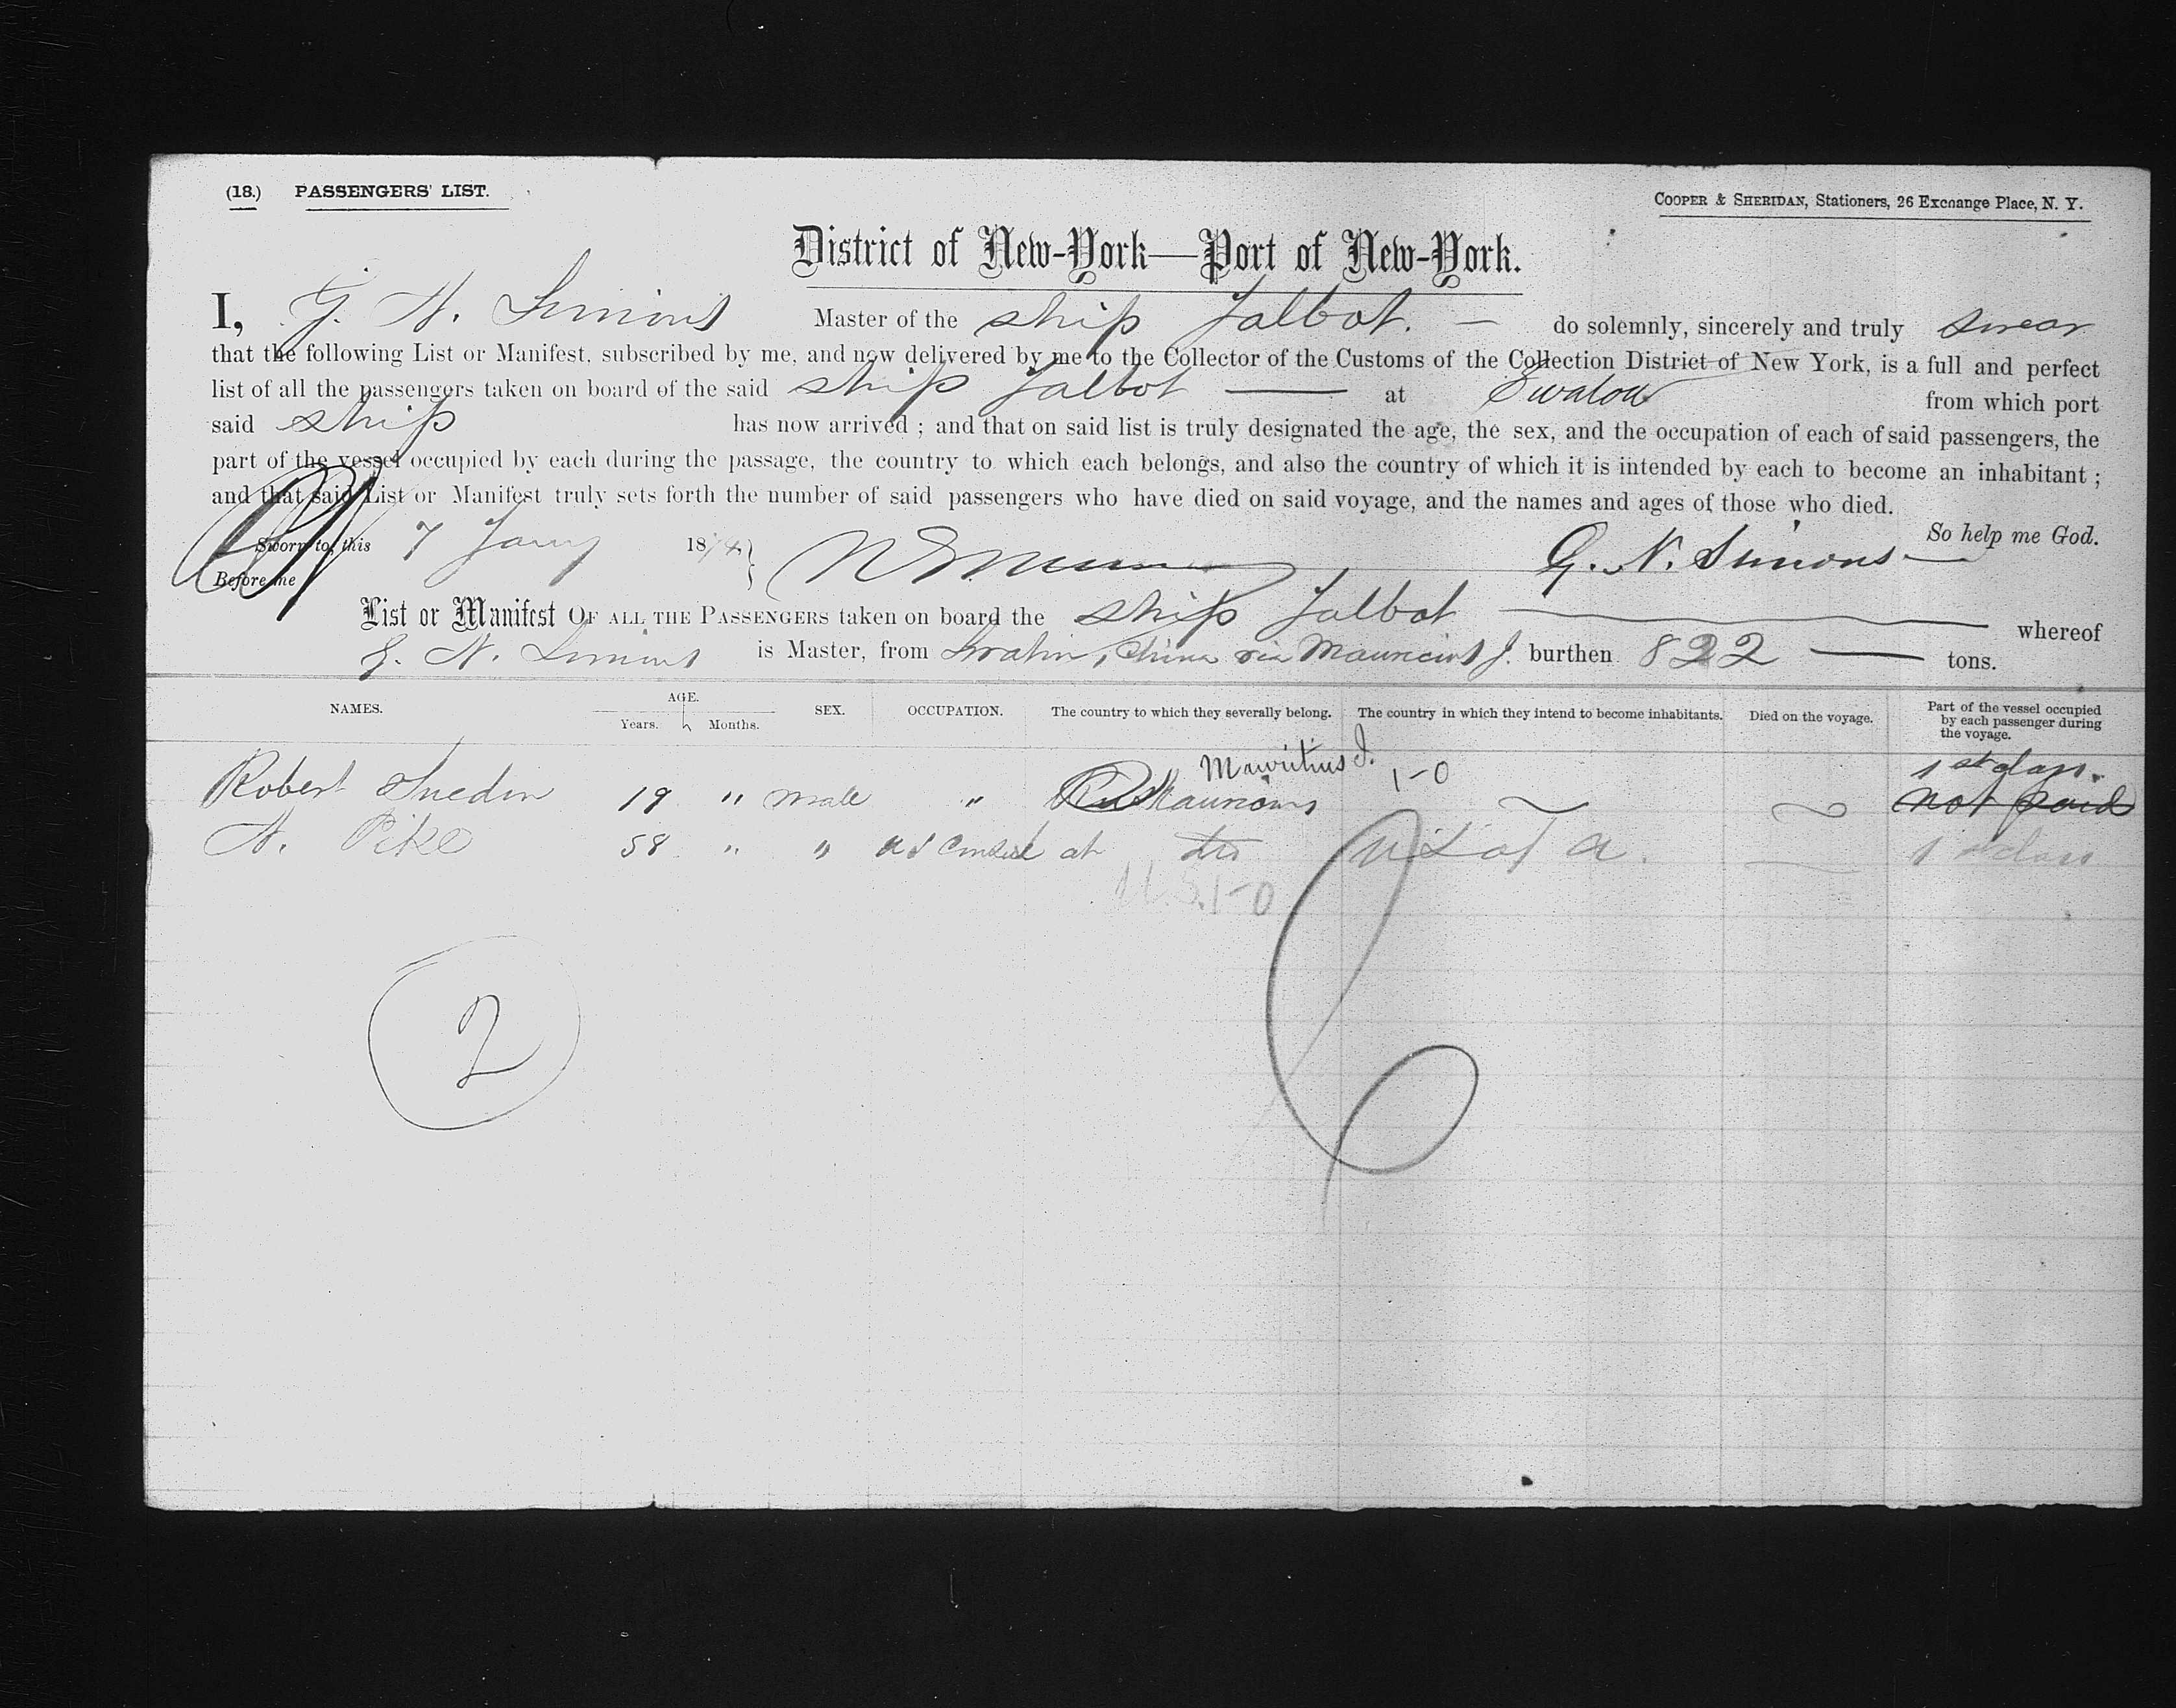 (18.) PASSENGERS' LIST.
COOPER & SHERIDAN, Stationers, 26 Exchange Place, N. Y.
District of New-York—Port of New-York.
I, G. N. Simons Master of the ship Talbot. — do solemnly, sincerely and truly swear
that the following List or Manifest, subscribed by me, and now delivered by me to the Collector of the Customs of the Collection District of New York, is a full and perfect
list of all the passengers taken on board of the said ship Talbot — at Swatow from which port
said ship has now arrived ; and that on said list is truly designated the age, the sex, and the occupation of each of said passengers, the
part of the vessel occupied by each during the passage, the country to which each belongs, and also the country of which it is intended by each to become an inhabitant ;
and that said List or Manifest truly sets forth the number of said passengers who have died on said voyage, and the names and ages of those who died.
So help me God.
Sworn to, this 7 Jany 1874 G. N. Simons
Before me
List or Manifest OF ALL THE PASSENGERS taken on board the ship Talbot whereof
G. N. Simons is Master, from China via Mauricius I. burthen 822 — tons.
NAMES. AGE. Years. Months. SEX. OCCUPATION. The country to which they severally belong. The country in which they intend to become inhabitants. Died on the voyage. Part of the vessel occupied by each passenger during the voyage.
Mauritius I. 1-0 1st class.
Robert 19 " male " Mauricius not paid
N. Pike 58 " " US Consul at do U S of A. 1st class
U.S. 1-0
2